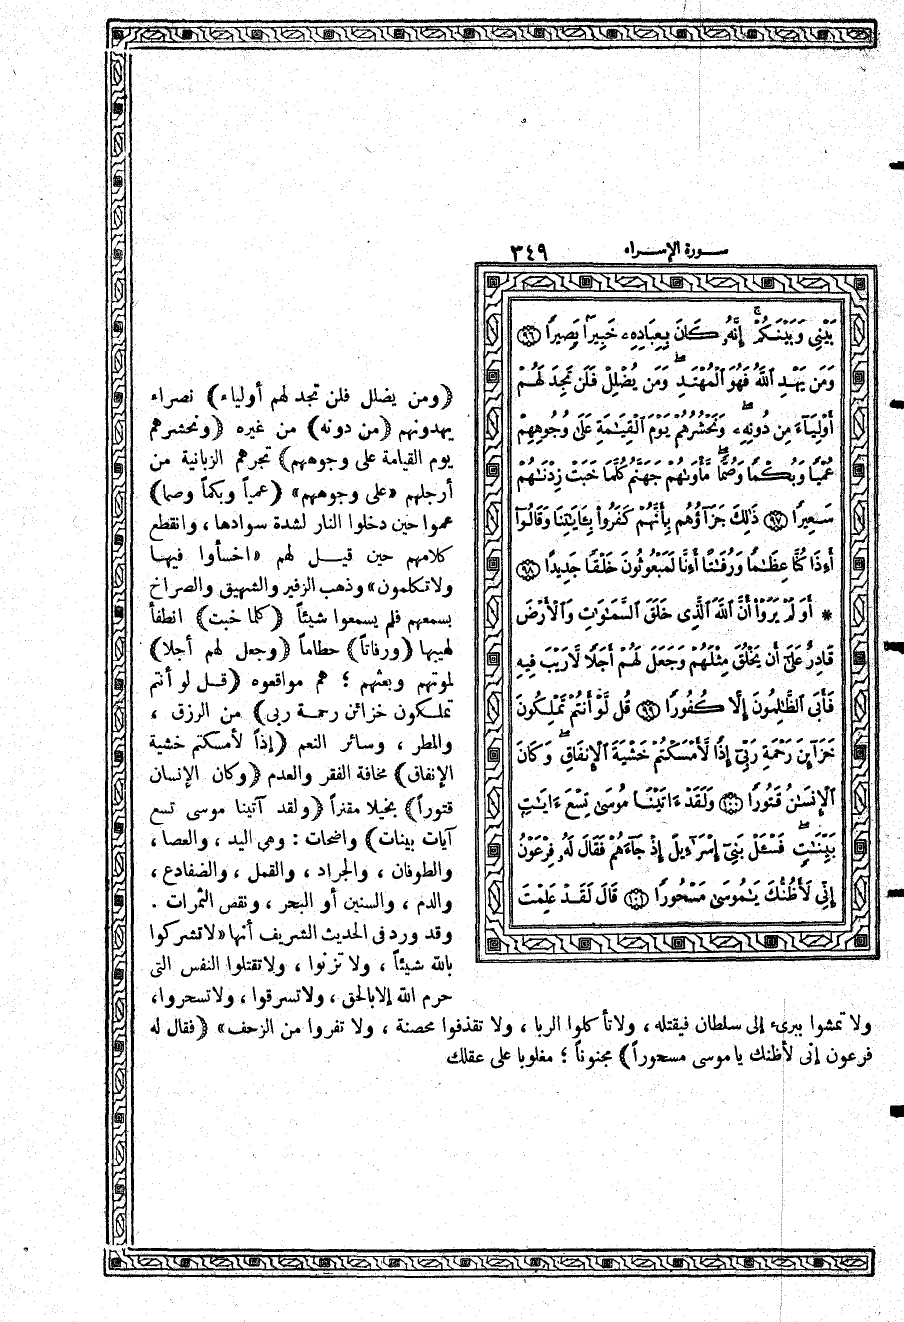 سورة الإسراء ٣٤٩
بَيْنِي وَبَيْنَكُمْ ۚ إِنَّهُۥ كَانَ بِعِبَادِهِۦ خَبِيرًۢا بَصِيرًا ٩٦
وَمَن يَهْدِ ٱللَّهُ فَهُوَ ٱلْمُهْتَدِ ۖ وَمَن يُضْلِلْ فَلَن تَجِدَ لَهُمْ
أَوْلِيَآءَ مِن دُونِهِۦ ۖ وَنَحْشُرُهُمْ يَوْمَ ٱلْقِيَٰمَةِ عَلَىٰ وُجُوهِهِمْ
عُمْيًا وَبُكْمًا وَصُمًّا ۖ مَّأْوَىٰهُمْ جَهَنَّمُ كُلَّمَا خَبَتْ زِدْنَٰهُمْ
سَعِيرًا ٩٧ ذَٰلِكَ جَزَآؤُهُم بِأَنَّهُمْ كَفَرُواْ بِـَٔايَٰتِنَا وَقَالُوٓاْ
أَءِذَا كُنَّا عِظَٰمًا وَرُفَٰتًا أَءِنَّا لَمَبْعُوثُونَ خَلْقًا جَدِيدًا ٩٨
* أَوَلَمْ يَرَوْاْ أَنَّ ٱللَّهَ ٱلَّذِى خَلَقَ ٱلسَّمَٰوَٰتِ وَٱلْأَرْضَ
قَادِرٌ عَلَىٰٓ أَن يَخْلُقَ مِثْلَهُمْ وَجَعَلَ لَهُمْ أَجَلًا لَّا رَيْبَ فِيهِ
فَأَبَى ٱلظَّٰلِمُونَ إِلَّا كُفُورًا ٩٩ قُل لَّوْ أَنتُمْ تَمْلِكُونَ
خَزَآئِنَ رَحْمَةِ رَبِّىٓ إِذًا لَّأَمْسَكْتُمْ خَشْيَةَ ٱلْإِنفَاقِ ۚ وَكَانَ
ٱلْإِنسَٰنُ قَتُورًا ١٠٠ وَلَقَدْ ءَاتَيْنَا مُوسَىٰ تِسْعَ ءَايَٰتٍۭ
بَيِّنَٰتٍ ۖ فَسْـَٔلْ بَنِىٓ إِسْرَٰٓءِيلَ إِذْ جَآءَهُمْ فَقَالَ لَهُۥ فِرْعَوْنُ
إِنِّى لَأَظُنُّكَ يَٰمُوسَىٰ مَسْحُورًا ١٠١ قَالَ لَقَدْ عَلِمْتَ
(ومن يضلل فلن تجد لهم أولياء) نصراء
يهدونهم (من دونه) من غيره (ونحشرهم
يوم القيامة على وجوههم) تجرهم الزبانية من
أرجلهم «على وجوههم» (عمياً وبكماً وصما)
عموا حين دخلوا النار لشدة سوادها ، وانقطع
كلامهم حين قيل لهم «اخسأوا فيها
ولاتكلمون» وذهب الزفير والشهيق والصراخ
بسمعهم فلم يسمعوا شيئاً (كلما خبت) انطفأ
لهيبها (ورفاتاً) حطاماً (وجعل لهم أجلا)
لموتهم وبعثهم ؛ هم مواقعوه (قل لو أنتم
تملكون خزائن رحمة ربى) من الرزق ،
والمطر ، وسائر النعم (إذاً لأمسكتم خشية
الإنفاق) مخافة الفقر والعدم (وكان الإنسان
قتوراً) بخيلا مقتراً (ولقد آتينا موسى تسع
آيات بينات) واضحات : وهى اليد ، والعصا ،
والطوفان ، والجراد ، والقمل ، والضفادع ،
والدم ، والسنين أو البحر ، ونقص الثمرات .
وقد ورد فى الحديث الشريف أنها «لاتشركوا
بالله شيئاً ، ولا تزنوا ، ولاتقتلوا النفس التى
حرم الله إلابالحق ، ولاتسرقوا ، ولاتسحروا،
ولا تمشوا ببرىء إلى سلطان فيقتله ، ولاتأكلوا الربا ، ولا تقذفوا محصنة ، ولا تفروا من الزحف» (فقال له
فرعون إنى لأظنك يا موسى مسحوراً) مجنوناً ؛ مغلوبا على عقلك